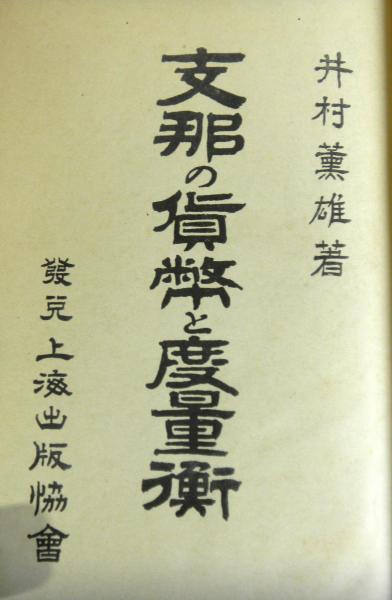 井村薫雄著
支那の貨幣と度量衡
發兌上海出版協會